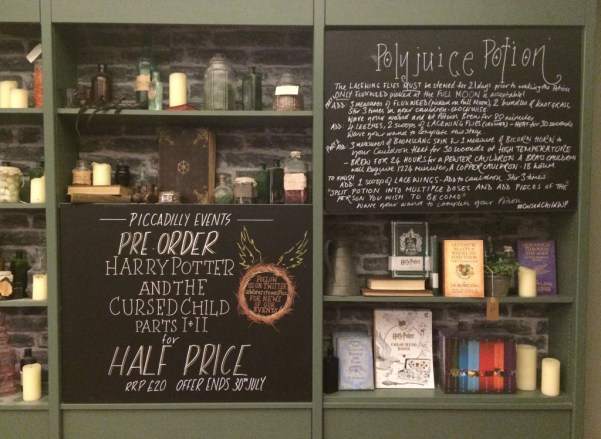 PICCADILLY EVENTS
PRE ORDER
HARRY POTTER
AND THE
CURSED CHILD
PARTS I+II
for
HALF PRICE
RRP £20 OFFER ENDS 30TH JULY
FOLLOW
US ON TWITTER
FOR NEWS
OF OUR
EVENTS
Polyjuice Potion
THE LACEWING FLIES MUST be stewed for 21 days prior to making the Potion
ONLY FLUXWEED picked at the FULL MOON is acceptable!
ADD: 3 measures of FLUXWEED (picked on full Moon) 2 bundles of KNOTGRASS
Stir 3 times in your cauldron - CLOCKWISE.
Wave your wand and let Potion Brew for 80 minutes
ADD: 4 LEECHES, 2 scoops of LACEWING FLIES - HEAT for 30 seconds
Wave your wand to complete this stage
3 measures of BOOMSLANG SKIN & 1 measure of BICORN HORN to
your Cauldron. Heat for 30 seconds at HIGH TEMPERATURE
- BREW FOR 24 HOURS for a PEWTER CAULDRON, A BRASS CAULDRON
will require 1224 minutes, A COPPER CAULDRON - 18 hours
TO FINISH
ADD 1 scoop of LACEWINGS - Add to cauldron. Stir 3 times
"SPLIT POTION INTO MULTIPLE DOSES AND ADD PIECES OF THE
PERSON YOU WISH TO BECOME"
Wave your wand to complete your Potion
Harry Potter
Harry Potter
COLOURING
BOOK